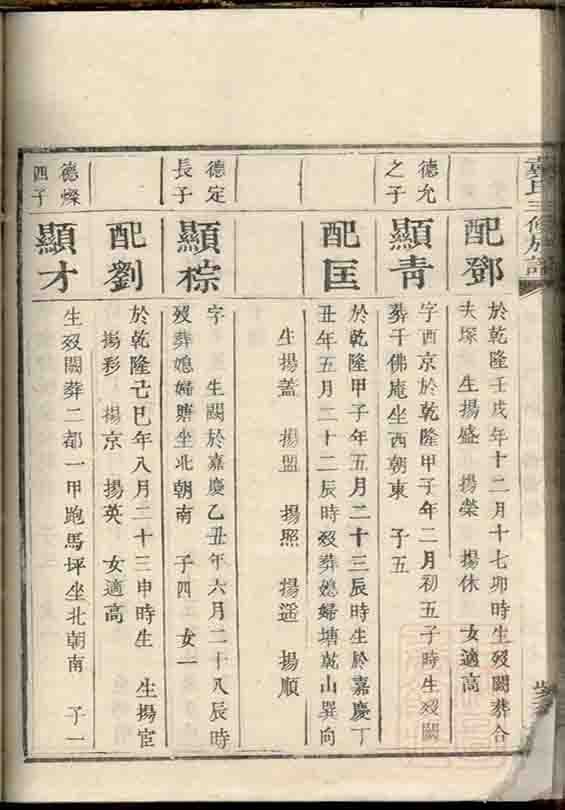 氏三修族譜
配鄧
於乾隆壬戌年十二月十七卯時生歿闕葬合
夫塚 生揚盛 揚榮 揚休 女適高
德允
之子
顯青
字西京於乾隆甲子年二月初五子時生歿闕
葬千佛庵坐西朝東 子五
配匡
於乾隆甲子年五月二十三辰時生於嘉慶丁
丑年五月二十二辰時歿葬媳婦塘乾山巽向
生揚蓋 揚盟 揚照 揚遥 揚順
德定
長子
顯棕
字 生闕於嘉慶乙丑年六月二十八辰時
歿葬媳婦塘坐北朝南 子四 女一
配劉
於乾隆己巳年八月二十三申時生 生揚宦
揚彩 揚京 揚英 女適高
德燦
四子
顯才
生歿闕葬二都一甲跑馬坪坐北朝南 子一